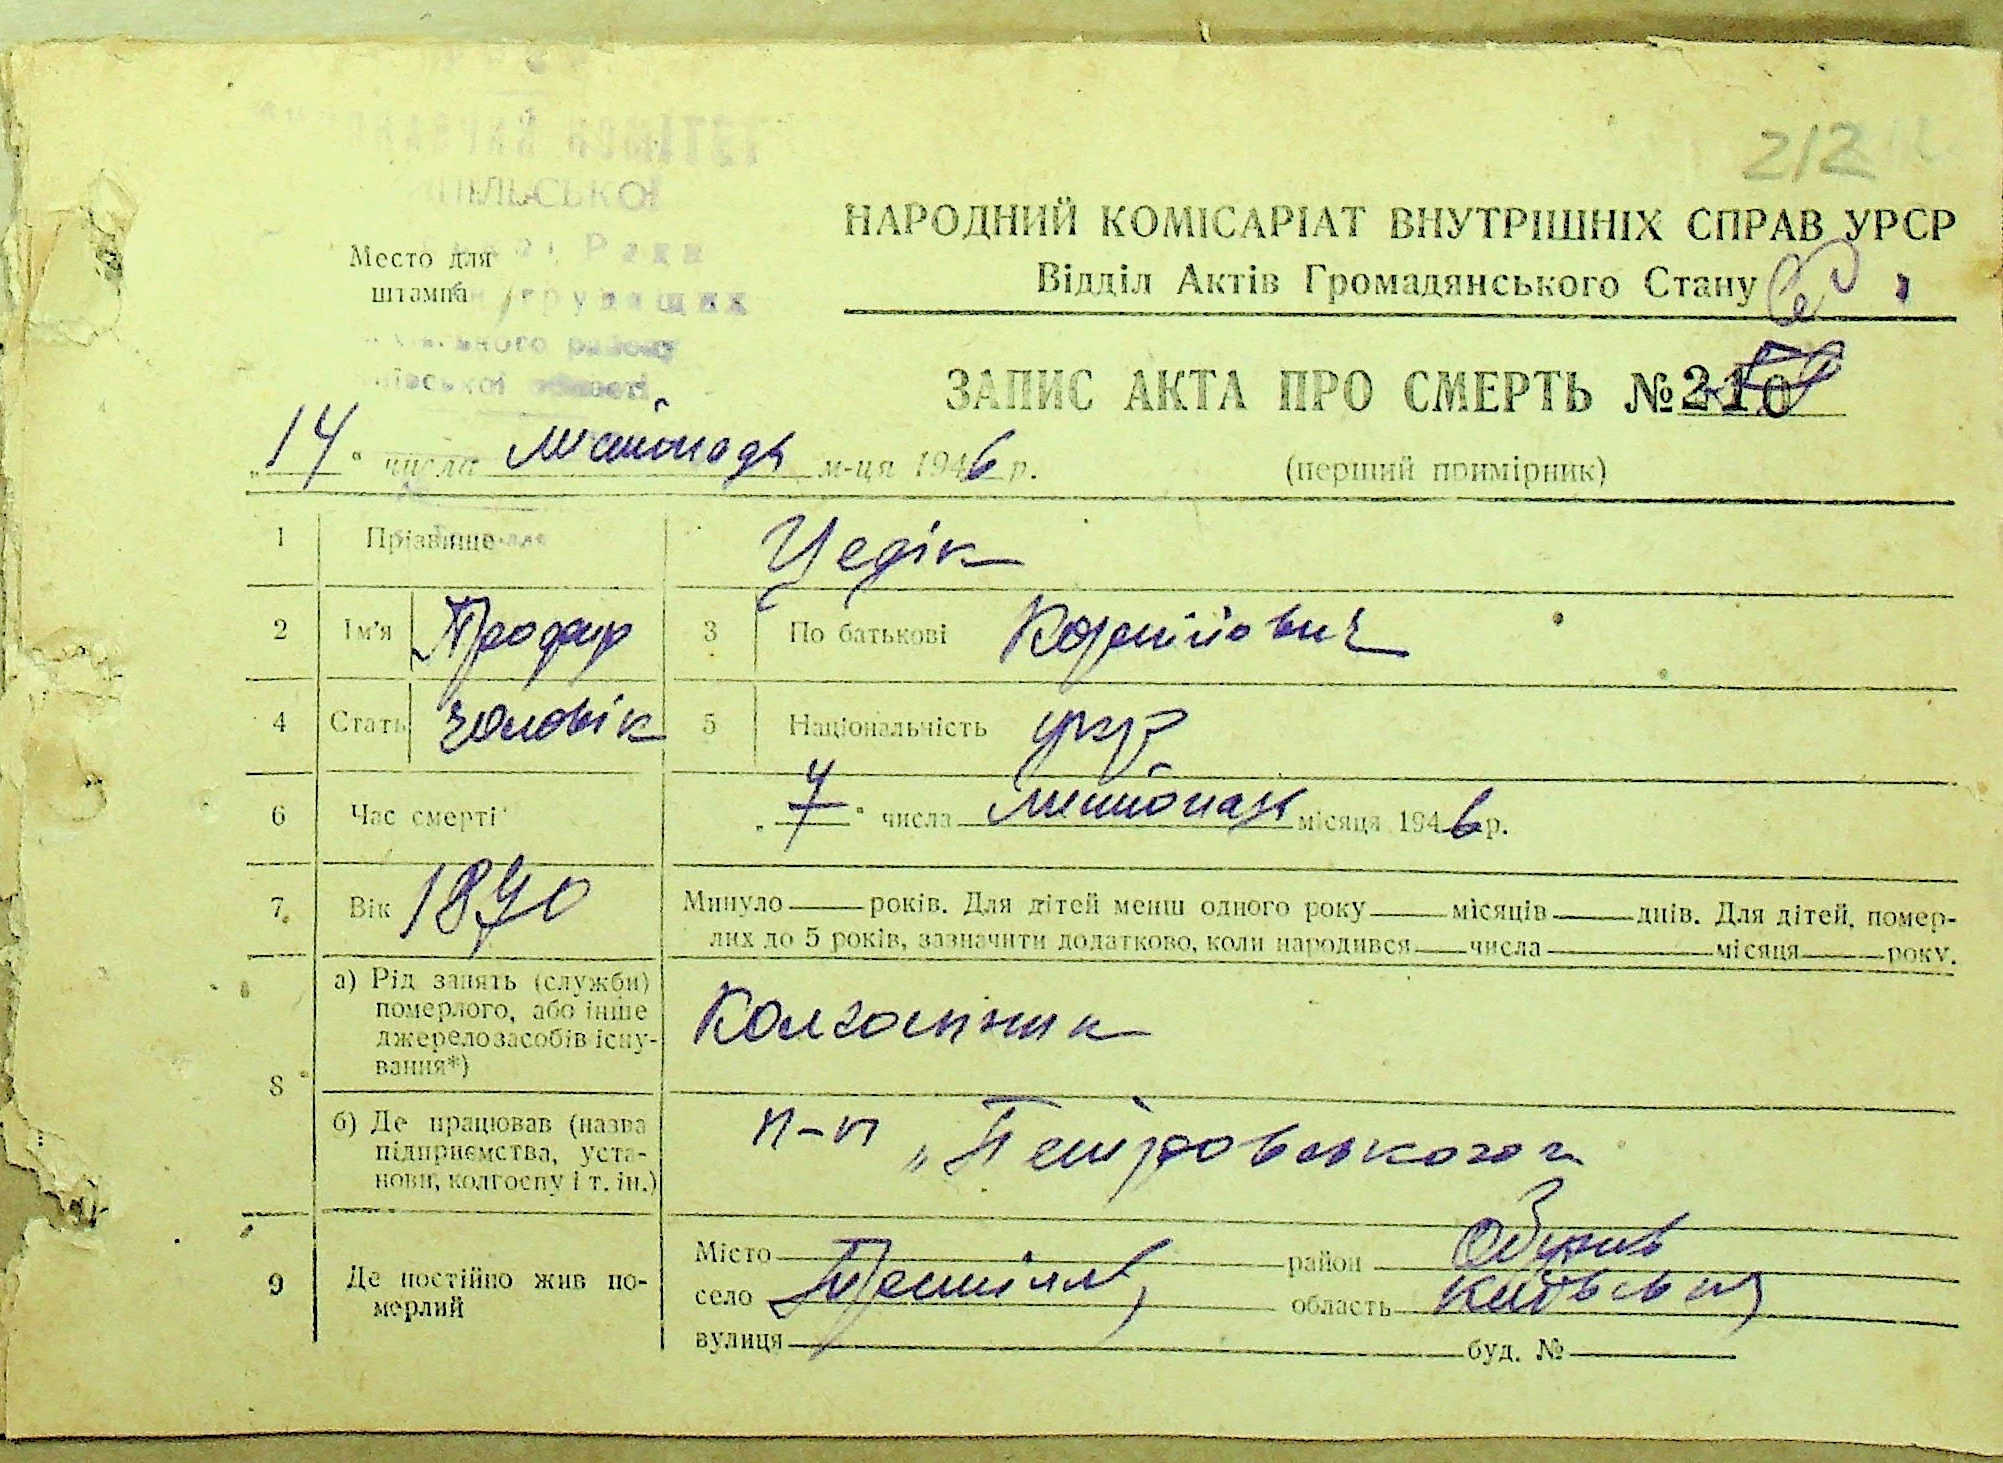 212
ПІЛЬСЬКОЇ
Место для
штампа
НАРОДНИЙ КОМІСАРІАТ ВНУТРІШНІХ СПРАВ УРСР
Відділ Актів Громадянського Стану
ЗАПИС АКТА ПРО СМЕРТЬ № 210
„14“ числа листопада м-ця 1946 р.
(перший примірник)
1 Прізвище Цедік
2 Ім'я 3 По батькові Корнійович
4 Стать чоловік 5 Національність укр
6 Час смерті „7“ числа листопада місяця 1946 р.
7 Вік 1870 Минуло років. Для дітей менш одного року місяців днів. Для дітей, помер-
лих до 5 років, зазначити додатково, коли народився числа місяця року.
8 а) Рід занять (служби)
померлого, або інше
джерело засобів існу-
вання*)
Колгоспник
б) Де працював (назва
підприємства, уста-
нови, колгоспу і т. ін.)
к-п „Петровського“
9 Де постійно жив по-
мерлий
Місто район Обухів
село область Київська
вулиця буд. №